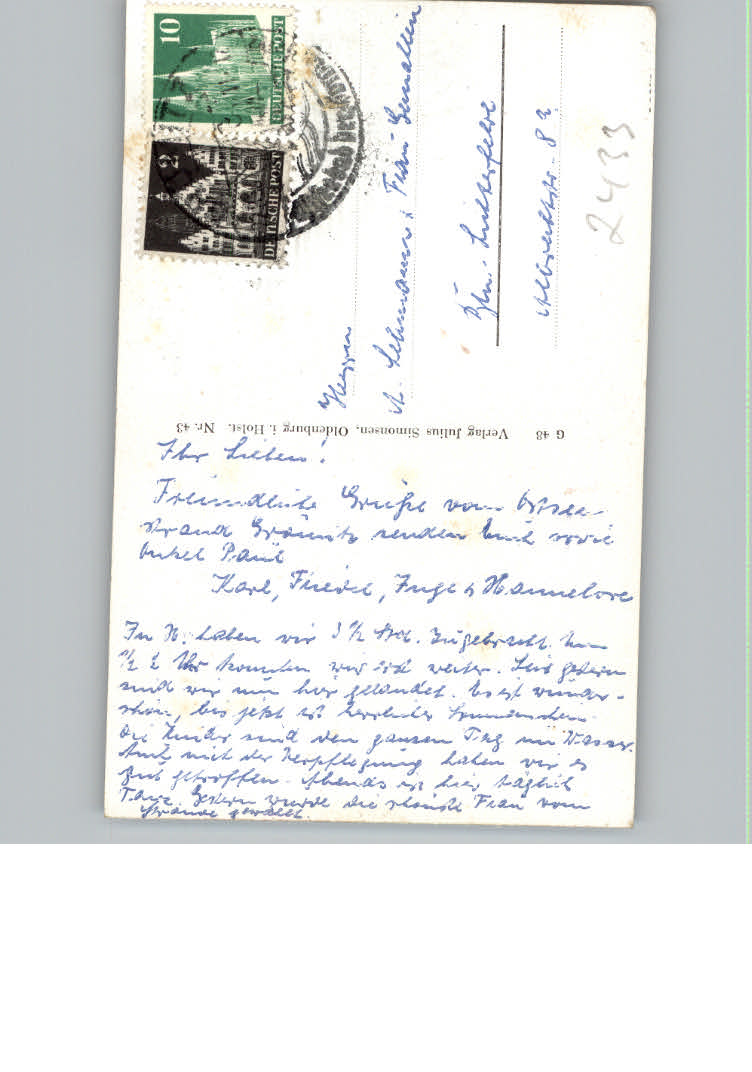 10
DEUTSCHE POST
2
DEUTSCHE POST
Herrn
A. Lehmann & Frau Gemahlin
Bln.-Lichterfelde
Albrechtstr. 8
2433
G 48 Verlag Julius Simonsen, Oldenburg i. Holst. Nr. 43
Ihr Lieben!
Freundliche Grüße vom Ostsee-
strand Grömitz senden Euch sowie
Onkel Paul
Karl, Friedel, Inge & Hannelore
In H. haben wir 3 1/2 Std. zugebracht. Um
1/2 2 Uhr konnten wir erst weiter. Seit gestern
sind wir nun hier gelandet. Es ist wunder-
schön, bis jetzt ist herrlicher Sonnenschein.
Die Kinder sind den ganzen Tag im Wasser.
Auch mit der Verpflegung haben wir es
gut getroffen. Abends ist hier täglich
Tanz. Gestern wurde die schönste Frau vom
Strande gewählt.